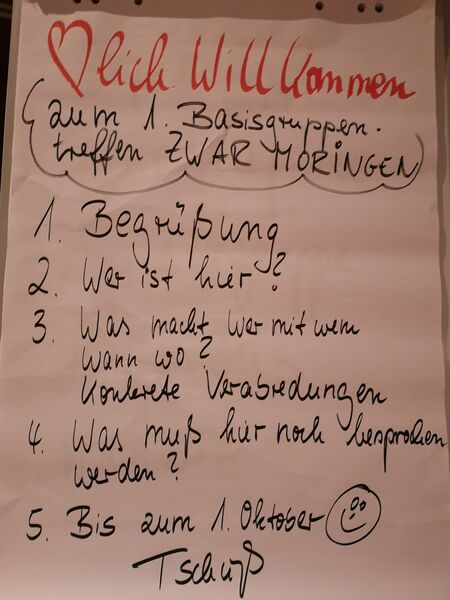 ♡lich Willkommen
zum 1. Basisgruppen-
treffen ZWAR MORINGEN
1. Begrüßung
2. Wer ist hier?
3. Was macht wer mit wem
wann wo?
Konkrete Verabredungen
4. Was muß hier noch besprochen
werden?
5. Bis zum 1. Oktober ☺
Tschüß